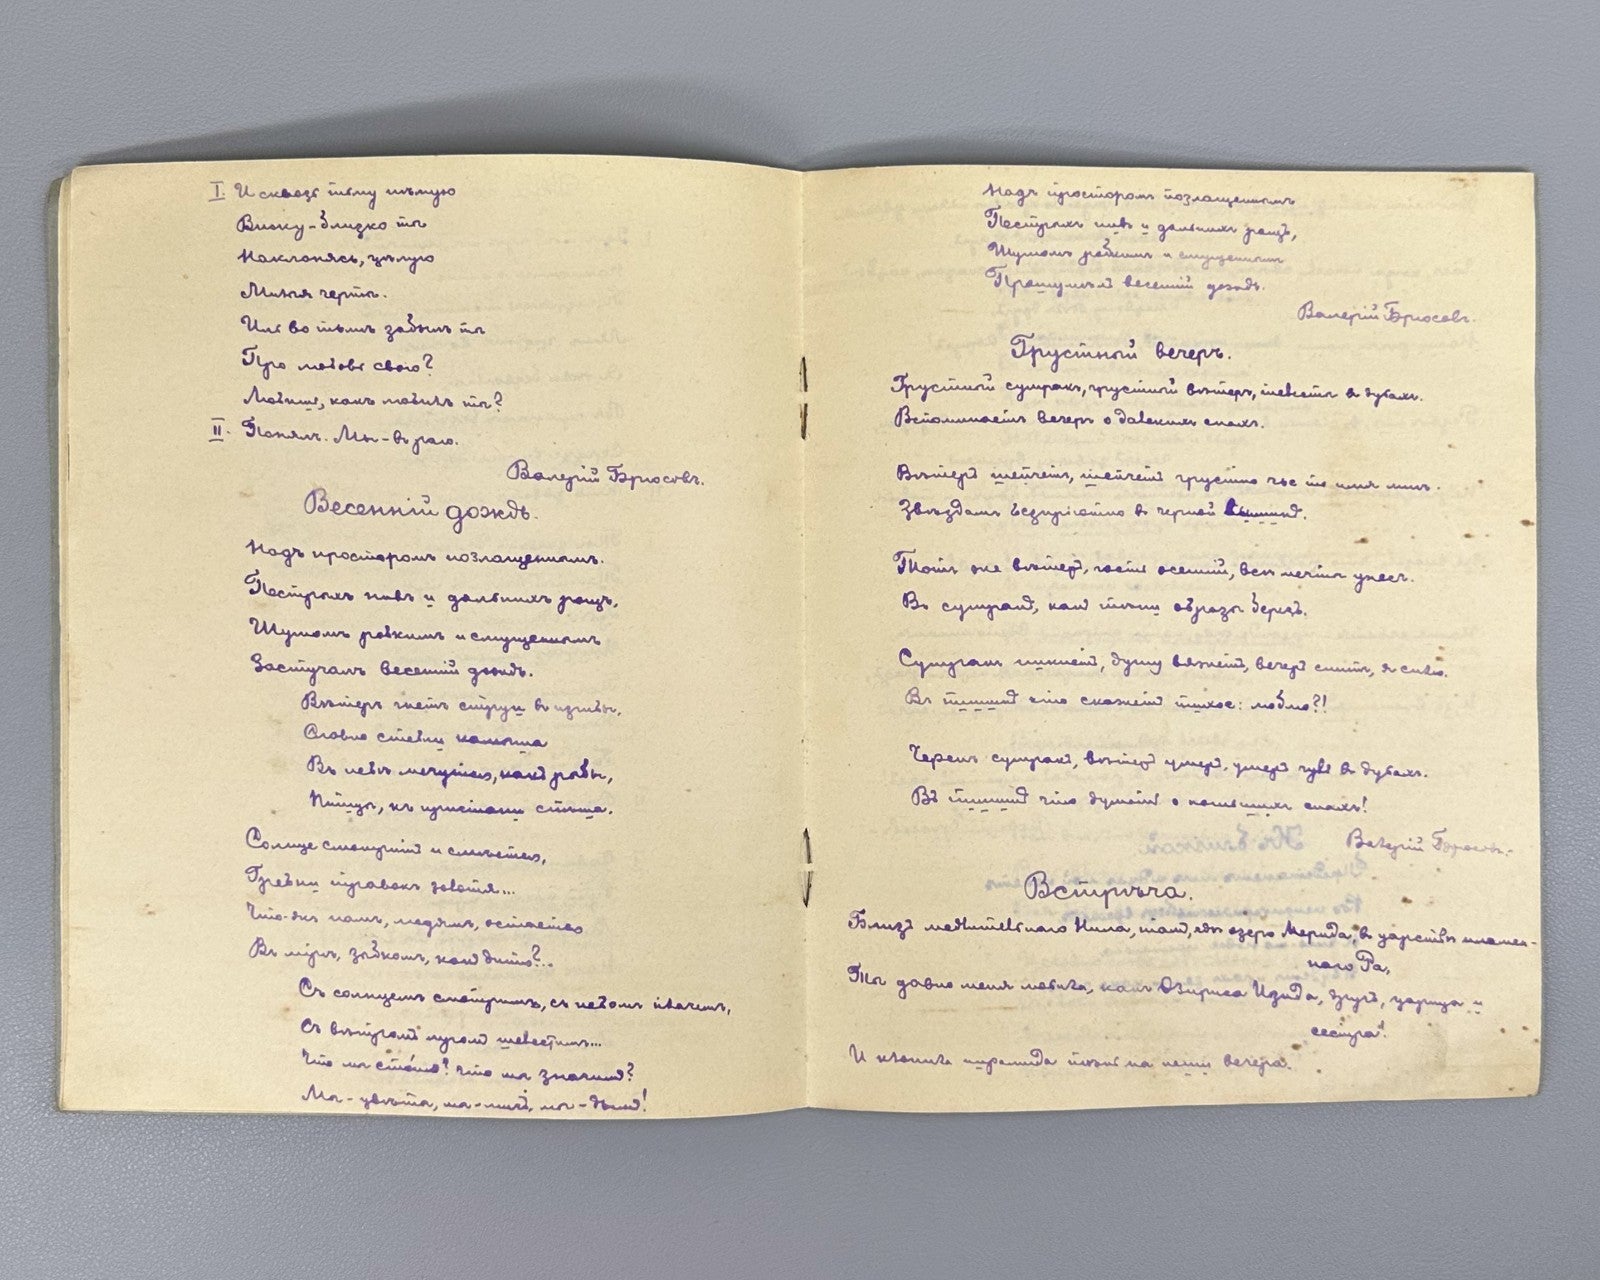 I. И сквозь тьму нѣмую
Вижу - близко ты
Наклонясь, цѣлую
Милыя черты.
Иль во тьмѣ забылъ ты
Про любовь свою?
Любишь, какъ любилъ ты?
II. Понялъ. Мы - въ раю.
Валерій Брюсовъ.
Весенній дождь.
Надъ просторомъ позлащеннымъ.
Пестрыхъ нивъ и дальнихъ рощъ,
Шумомъ робкимъ и смущеннымъ
Застучалъ весенній дождь.
Вѣтеръ гнетъ струи въ изгибы,
Словно стебли камыша
Въ небѣ мечутся, какъ рыбы,
Птицы, къ пристани спѣша.
Солнце смотритъ и смѣется,
Гребни травокъ золотя...
Что-жъ намъ, людямъ, остается
Въ мірѣ, зыбкомъ, какъ дитя?...
Съ солнцемъ смотримъ, съ небомъ плачемъ,
Съ вѣтромъ лугомъ шелестимъ...
Что мы стоимъ? что мы значимъ?
Мы - цвѣты, мы - мигъ, мы - дымъ!
Надъ просторомъ позлащеннымъ
Пестрыхъ нивъ и дальнихъ рощъ,
Шумомъ робкимъ и смущеннымъ
Прошумѣлъ весенній дождь.
Валерій Брюсовъ.
Грустный вечеръ.
Грустный сумракъ, грустный вѣтеръ, шелесты въ дубахъ.
Вспоминаетъ вечеръ о далекихъ снахъ.
Вѣтеръ шепчетъ, шепчетъ грустно чье то имя мнѣ.
Звѣздамъ безпріютно въ черной вышинѣ.
Тотъ же вѣтеръ, гость осенній, всѣ мечты унесъ.
Въ сумракѣ, какъ тѣни образы березъ.
Сумракъ никнетъ, душу вяжетъ, вечеръ спитъ, я сплю.
Въ тишинѣ кто скажетъ тихое: люблю?!
Черенъ сумракъ, вѣтеръ умеръ, умеръ гулъ въ дубахъ.
Въ тишинѣ кто думаетъ о погибшихъ снахъ!
Валерій Брюсовъ.
Встрѣча.
Близъ медлительнаго Нила, тамъ, гдѣ озеро Мерида, въ царствѣ пламен-
наго Ра,
Ты давно меня любила, какъ Озириса Изида, другъ, царица и
сестра!
И клонила пирамида тѣнь на наши вечера.